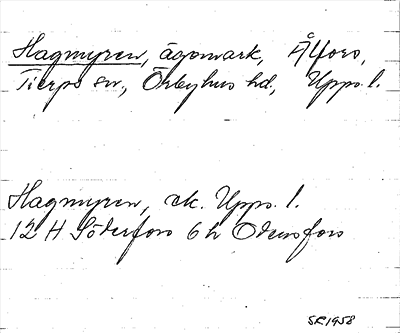 Hagmyren, ägomark, Älfors,
Tierps sn., Örbyhus hd., Upps. l.
Hagmyren, ek. Upps. l.
12 H Söderfors 6 h Odensfors
SR 1958